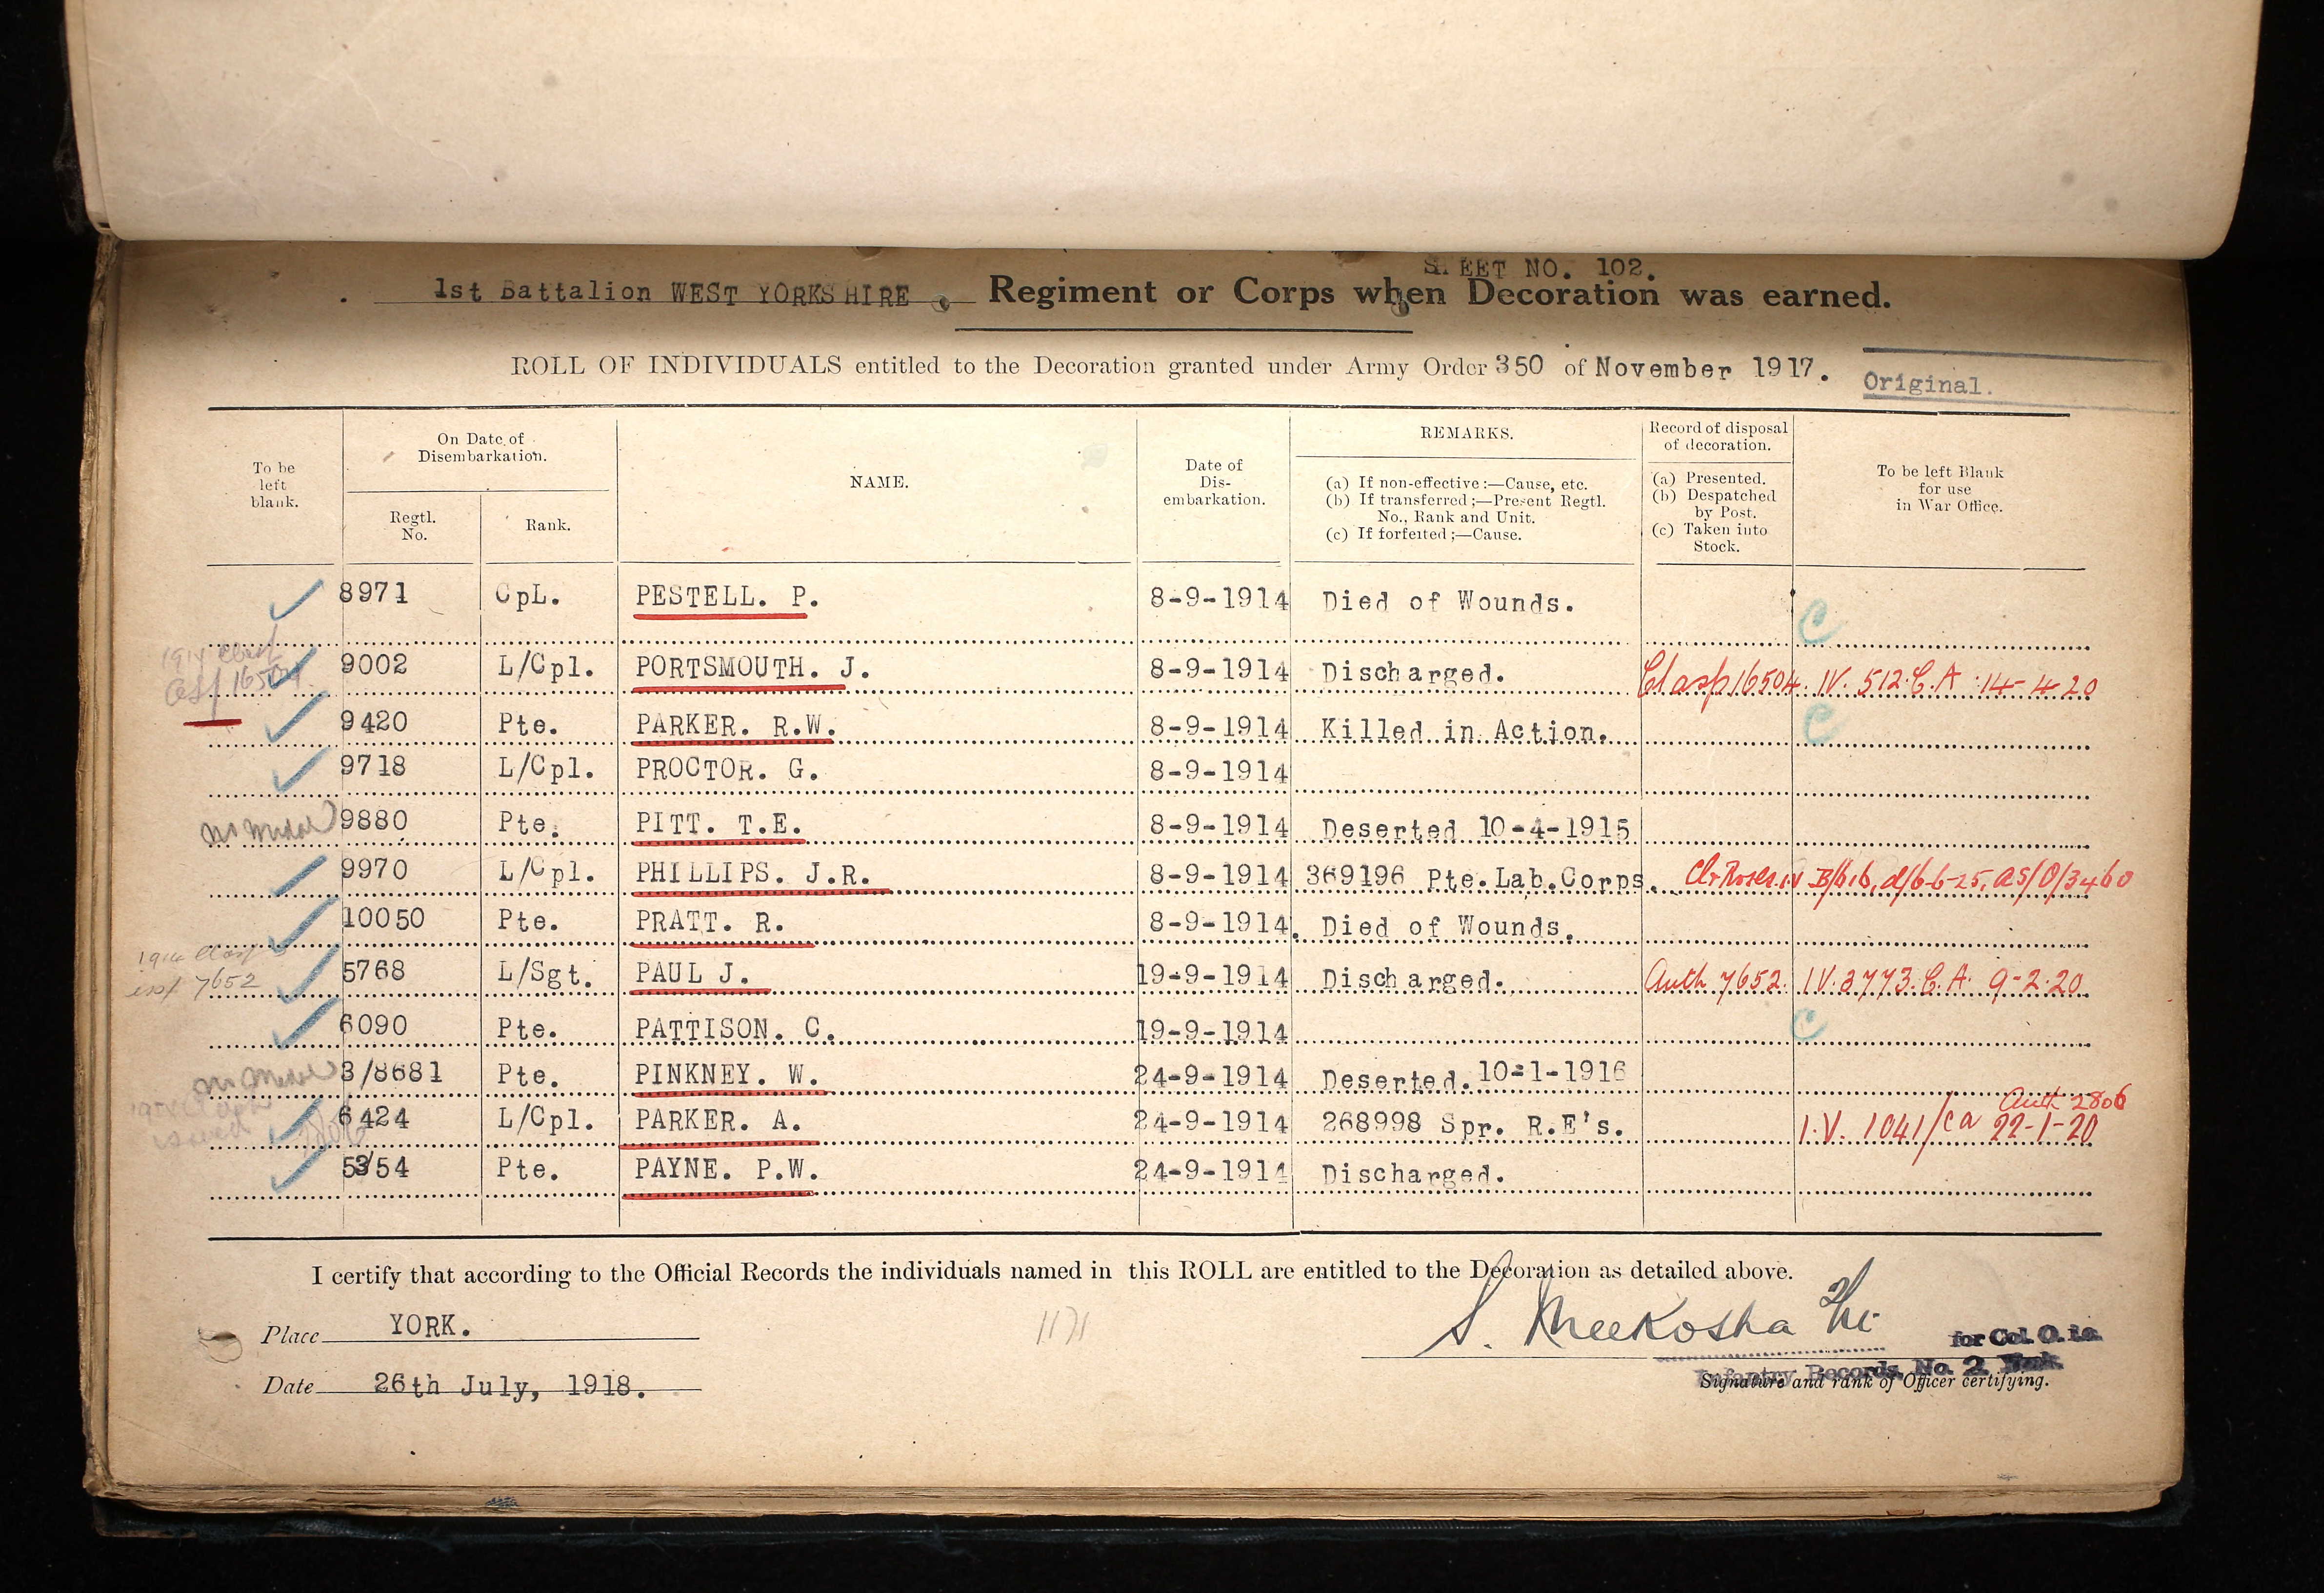 SHEET NO. 102.
1st Battalion WEST YORKSHIRE. Regiment or Corps when Decoration was earned.
ROLL OF INDIVIDUALS entitled to the Decoration granted under Army Order 350 of November 1917.
Original.
To be left blank.
On Date of Disembarkation.
Regtl. No.
Rank.
NAME.
Date of Dis-embarkation.
REMARKS.
(a) If non-effective:—Cause, etc.
(b) If transferred;—Present Regtl. No., Rank and Unit.
(c) If forfeited;—Cause.
Record of disposal of decoration.
(a) Presented.
(b) Despatched by Post.
(c) Taken into Stock.
To be left Blank for use in War Office.
8971 CpL. PESTELL. P. 8-9-1914 Died of Wounds. C
1914 Clasp
16504
9002 L/Cpl. PORTSMOUTH. J. 8-9-1914 Discharged. Clasp 16504. IV. 512.C.A 14-4-20
9420 Pte. PARKER. R.W. 8-9-1914 Killed in Action. C
9718 L/Cpl. PROCTOR. G. 8-9-1914
No Medal 9880 Pte. PITT. T.E. 8-9-1914 Deserted 10-4-1915
9970 L/Cpl. PHILLIPS. J.R. 8-9-1914 369196 Pte. Lab. Corps. Clr Roses IV B/616, d/6-6-25, AS/O/3460
10050 Pte. PRATT. R. 8-9-1914. Died of Wounds.
1914 Clasp
iss/ 7652
5768 L/Sgt. PAUL J. 19-9-1914 Discharged. Auth 7652. IV.3773.C.A. 9-2-20.
6090 Pte. PATTISON. C. 19-9-1914 C
No Medal 3/8681 Pte. PINKNEY. W. 24-9-1914 Deserted. 10-1-1916
issued
6424 L/Cpl. PARKER. A. 24-9-1914 268998 Spr. R.E's. Auth 2806
I.V. 1041/ca 22-1-20
5354 Pte. PAYNE. P.W. 24-9-1914 Discharged.
I certify that according to the Official Records the individuals named in this ROLL are entitled to the Decoration as detailed above.
Place YORK.
1171
S. Meekosha
for Col. O. i/c.
Infantry Records, No. 2 York.
Date 26th July, 1918.
Signature and rank of Officer certifying.